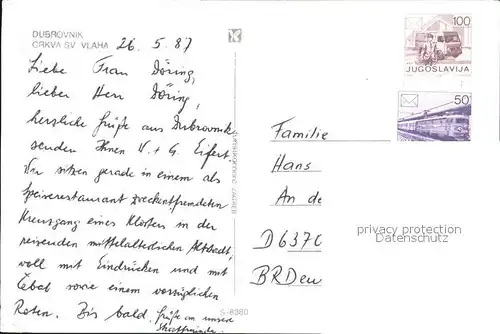 DUBROVNIK
CRKVA SV. VLAHA
26. 5. 87
Liebe Frau Döring,
lieber Herr Döring,
herzliche Grüße aus Dubrovnik
senden Ihnen V. + G. Eifert.
Wir sitzen gerade in einem als
Speiserestaurant zweckentfremdeten
Kreuzgang eines Klosters in der
reizenden mittelalterlichen Altstadt,
voll mit Eindrücken und mit
sowie einem vorzüglichen
Roten. Bis bald.
Grüße an unsere
100
JUGOSLAVIJA
50
Familie
Hans
An de
D 637
BRDeu
privacy protection
Datenschutz
S-8380